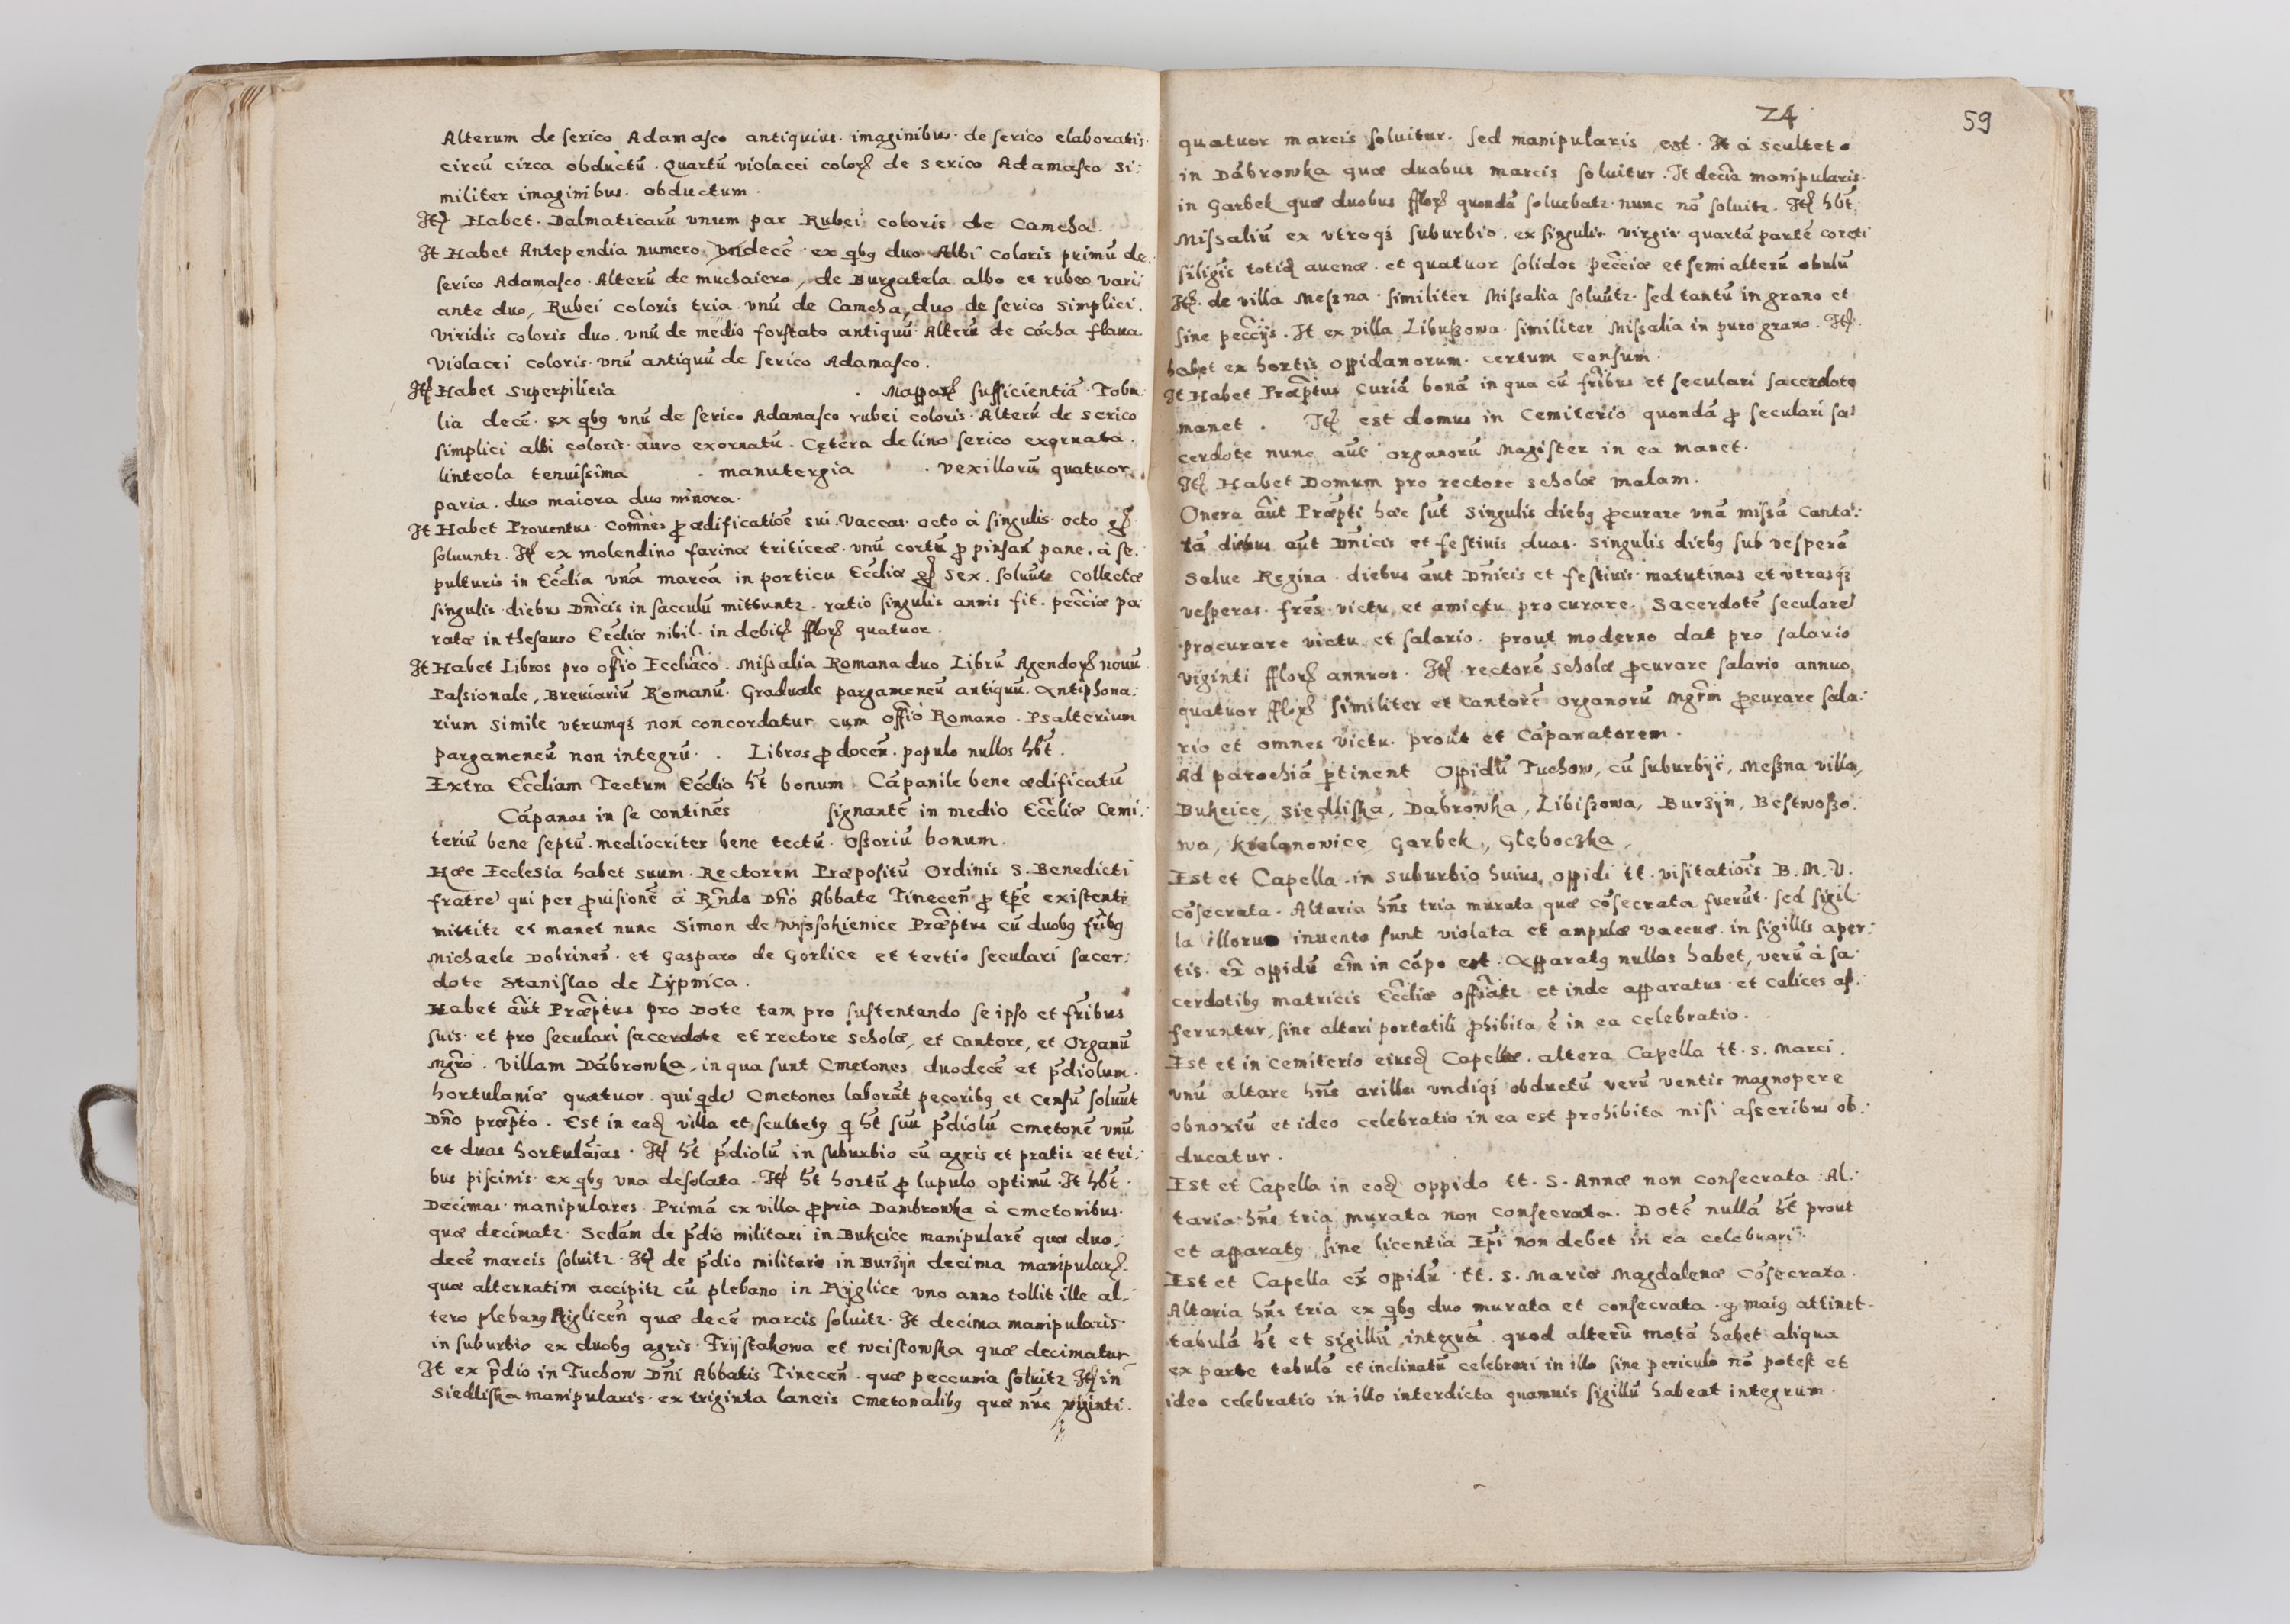 Alterum de serico Adamasco antiquius. imaginibus. de serico elaboratis.
circũ circa obductũ. Quartũ violacei coloris de serico Adamasco Si:
militer imaginibus. obductum.
Itẽ Habet. Dalmaticarũ vnum par Rubei coloris de Camcha.
It Habet Antependia numero vndecẽ ex qbꝫ duo Albi coloris primũ de
serico Adamasco. Alterũ de muchaiero, de Burgatela albo et rubeo varii
ante duo, Rubei coloris tria vnũ de Camcha, duo de serico simplici.
Viridis coloris duo. vnũ de medio forstato antiquũ Alterũ de cãcha flaua
violacei coloris. vnũ antiquũ de serico Adamasco.
Itẽ Habet Superpilicia . Mappaꝝ sufficientiã. Toba
lia decẽ. ex qbꝫ vnũ de serico Adamasco rubei coloris. Alterũ de serico
simplici albi coloris auro exornatũ. Cętera de lino serico exornata.
linteola tenuissima . manutergia . vexillorũ quatuor
paria. duo maiora duo minora.
It Habet Prouentus. Com̃nes ꝓ ædificatiõe sui. Vaccas octo à singulis octo gꝝ
soluuntꝛ. Itẽ ex molendino farinæ triticeæ. vnũ cortũ ꝓ pinsan̄ pane. à se.
pulturis in Ecc̃lia vnã marcã in porticu Ecc̃liæ gꝝ sex. soluũt Collectæ
singulis diebus Dn̄icis in sacculũ mittuntꝛ. ratio singulis annis fit. pecc̃iæ pa
ratæ in thesauro Ecc̃liæ nihil. in debitꝭ fflorꝭ quatuor.
It Habet Libros pro offĩo Ecclĩaco. Missalia Romana duo Librũ Agendoꝝ nouũ
Passionale, Breuiariũ Romanũ. Graduale pargameneũ antiquũ. Antiphona:
rium simile vtrumqꝫ non concordatur cum offĩo Romano. Psalterium
pargameneũ non integrũ. . Libros ꝓ docen̄. populo nullos hb̃t.
Extra Ecc̃liam Tectum Ecc̃lia ht̃ bonum Cãpanile bene ædificatũ
Cãpanas in se continẽs signantẽ in medio Ecc̃liæ Cemi:
teriũ bene septũ. mediocriter bene tectũ. Ossoriũ bonum.
Hæc Ecclesia habet suum. Rectorem Præpositũ Ordinis S. Benedicti
fratrẽ qui per ꝓuisionẽ à Rñdo Dño Abbate Tinecen̄ ꝓ tp̃e existente
mittitꝛ et manet nunc Simon de Wissokienice Præptus cũ duobꝫ fribꝫ
Michaele Dobrinen̄. et Gasparo de Gorlice et tertio seculari sacer:
dote Stanislao de Lÿpnica.
Habet aũt Præptus pro Dote tam pro sustentando se ipso et fribus
suis. et pro seculari sacerdote et rectore scholæ, et Cantore, et Organũ
Mgr̃o. Villam Dãbrowka, in qua sunt Cmetones duodecẽ et p̃diolum.
hortulaniæ quatuor. qui qdẽ Cmetones laborãt pecoribꝫ et Censũ soluũt
Dño præpto. Est in eadẽ villa et scultetꝫ q̃ ht̃ suũ p̃diolũ cmetonẽ vnũ
et duas hortulãias. Itẽ ht̃ p̃diolũ in suburbio cũ agris et pratis et tri:
bus piscinis ex qbꝫ vna desolata. Itẽ ht̃ hortũ ꝓ lupulo optimũ. It hb̃t.
Decimas manipulares. Primã ex villa ꝓpria Dambrowka à cmetonibus.
quæ decimatꝛ. Secdam de p̃dio militari in Bukcice manipularẽ quæ duo:
decẽ marcis soluitꝛ. Itẽ de p̃dio militari in Burzÿn decima manipularꝭ.
quæ alternatim accipitꝛ cũ plebano in Rÿglice vno anno tollit ille al:
tero plebanꝫ Riglicen̄ quæ decẽ marcis soluitꝛ. It decima manipularis.
in suburbio ex duobꝫ agris. Trÿstakowa et Wcistowska quæ decimatur
It ex p̃dio in Tuchow Dñi Abbatis Tinecen̄. quæ peccunia soluitꝛ Itẽ in
Siedliska manipularis. ex triginta laneis Cmetonalibꝫ quæ nũc viginti.
24
59
quatuor marcis soluitur. sed manipularis est. It à sculteto
in Dãbrowka quæ duabus marcis soluitur. It decĩa manipularis.
in Garbek quæ duobus fflorꝭ quondã soluebatꝛ. nunc nõ soluitꝛ. Itẽ hb̃t
Missaliũ ex vtroqꝫ suburbio. ex singulis virgis quartã partẽ coreti
siliginis totidẽ auenæ. et quatuor solidos pecc̃iæ et semialterũ obulũ
Itẽ. de villa Meszna similiter Missalia soluũtꝛ. sed tantũ in grano et
sine pecc̃ijs. It ex villa Libuszowa. similiter Missalia in puro grano. Itẽ.
habet ex hortis oppidanorum. certum censum.
It Habet Præptus Curiã bonã in qua cũ fribus et seculari sacerdote
manet. Itẽ est domus in Cemiterio quondã ꝓ seculari sa:
cerdote nunc aũt organorũ Magister in ea manet.
Itẽ Habet Domum pro rectore scholæ malam.
Onera aũt Præpti hæc sũt singulis diebꝫ ꝓcurare vnã missã Canta:
tã diebus aũt Dn̄icis et festiuis duas. Singulis diebꝫ sub vesperã
Salue Regina. diebus aũt Dn̄icis et festiuis. matutinas et vtrasqꝫ
vesperas. frẽs. victu et amictu procurare. Sacerdotẽ secularẽ
procurare victu et salario. prout moderno dat pro salario
viginti fflorꝭ annuos. Itẽ rectorẽ scholæ ꝓcurare salario annuo
quatuor fflorꝭ similiter et Cantorẽ organorũ Mgr̃m ꝓcurare sala:
rio et omnes victu. prout et Cãpanatorem.
Ad parochiã ꝑtinent Oppidũ Tuchow, cũ suburbijs, Meszna villa,
Bukcice, Siedliska, Dąbrowka, Libiszowa, Burzÿn, Bestwoszo:
wa, Kielanowice, Garbek, Głęboczka,
Est et Capella in suburbio huius oppidi tt. visitatiois B. M. V.
cõsecrata. Altaria hñs tria murata quæ cõsecrata fuerũt. sed sigil:
la illorum inuenta sunt violata et ampulæ vacuæ. in sigillis aper:
tis. ex̃ oppidũ em̃ in cãpo est. Apparatꝫ nullos habet, verũ à sa:
cerdotibꝫ matricis Ecc̃liæ offĩatꝛ et inde apparatus et calices af:
feruntur, sine altari portatili ꝓhibita ẽ in ea celebratio.
Est et in cemiterio eiusdẽ Capellæ. altera Capella tt. S. Marci.
vnũ altare hñs arilla vndiqꝫ obductũ verũ ventis magnopere
obnoxiũ et ideo celebratio in ea est prohibita nisi asseribus ob:
ducatur.
Est et Capella in eodẽ oppido tt. S. Annæ non consecrata. Al:
taria hñs tria murata non consecrata. Dotẽ nullã ht̃ prout
et apparatꝫ sine licentia Ep̃i non debet in ea celebrari.
Est et Capella ex̃ oppidũ tt. S. Mariæ Magdalenæ cõsecrata.
Altaria hñs tria ex qbꝫ duo murata et consecrata. q̃ maiꝫ attinet.
tabulã ht̃ et sigillũ integrã quod alterũ motã habet aliqua
ex parte tabulã et inclinatũ celebrari in illo sine periculo nõ potest et
ideo celebratio in illo interdicta quamuis sigillũ habeat integrum.